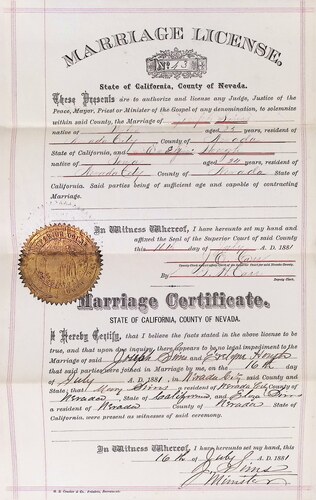 MARRIAGE LICENSE,
No. 13
State of California, County of Nevada.
These Presents are to authorize and license any Judge, Justice of the
Peace, Mayor, Priest or Minister of the Gospel of any denomination, to solemnize
within said County, the Marriage of
native of aged 32 years, resident of
City County of Nevada
State of California, and
native of aged 24 years, resident of
Nevada City County of Nevada State of
California. Said parties being of sufficient age and capable of contracting
Marriage.
In Witness Whereof, I have hereunto set my hand and
affixed the Seal of the Superior Court of said County
this 16th day of July A. D. 1881
By
Deputy Clerk.
Marriage Certificate.
STATE OF CALIFORNIA, COUNTY OF NEVADA.
I Hereby Certify, that I believe the facts stated in the above license to be
true, and that upon due inquiry, there appears to be no legal impediment to the
Marriage of said Joseph Sims and Evelyne
that said parties were joined in Marriage by me, on the 16th day of
July A. D. 1881, in Nevada City said County and
State; that Mary Sims a resident of Nevada City County of
Nevada, State of California and Eliza Sims
a resident of Nevada County of Nevada State of
California, were present as witnesses of said ceremony.
In Witness Whereof, I have hereunto set my hand, this
16th of July 1881
J. Sims
Minister